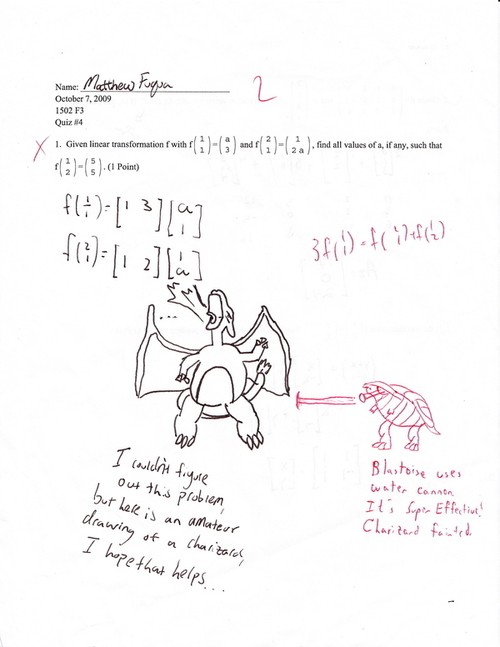 Name: Matthew Fuqua
2
October 7, 2009
1502 F3
Quiz #4
X 1. Given linear transformation f with f(1 1)=(a 3) and f(2 1)=(1 2a), find all values of a, if any, such that
f(1 2)=(5 5). (1 Point)
f(1 1)=[1 3][a 1]
f(2 1)=[1 2][1 a]
...
I couldn't figure
out this problem,
but here is an amateur
drawing of a charizard,
I hope that helps...
Blastoise uses
water cannon
It's Super Effective!
Charizard fainted.